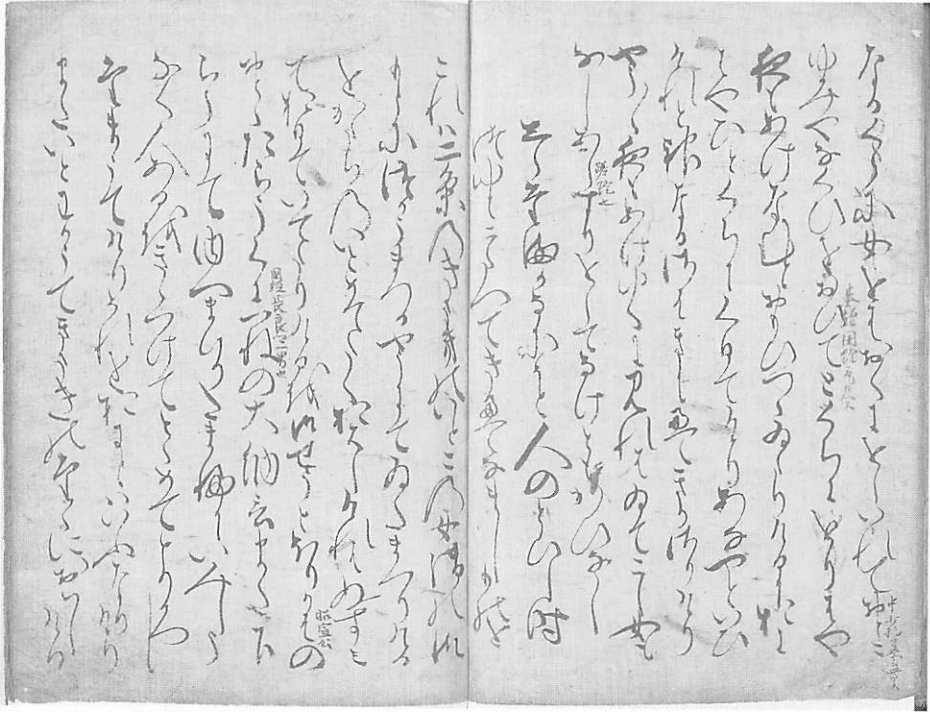 なるくらに女をはおくにをしいれておとこ
ゆみやなくひをおひてとくちにをりはや
夜もあけなむとおもひつゝゐたりけるにおに
はやひとくちにくひてけりあなやといひ
けれと神なるさはきにえきかさりけり
やうやう夜もあけゆくに見れはゐてこし女も
なしあしすりをしてなけともかひなし
しらたまかなにそと人のとひし時
つゆとこたへてきえなましものを
これは二条のきさきのいとこの女御の御
もとにつかうまつるやうにてゐたまへりける
をかたちのいとめてたくおはしけれはぬすみ
ておひていてたりけるを御せうとほりかはの
昭宣公
おとゝたらうくにつねの大納言また下
らうにて内へまいりたまふにいみしう
なく人あるをきゝつけてとゝめてとりかへし
たまうてけりそれをかくおにとはいふなりけり
またいとわかうてきさきのたゝにおはしける